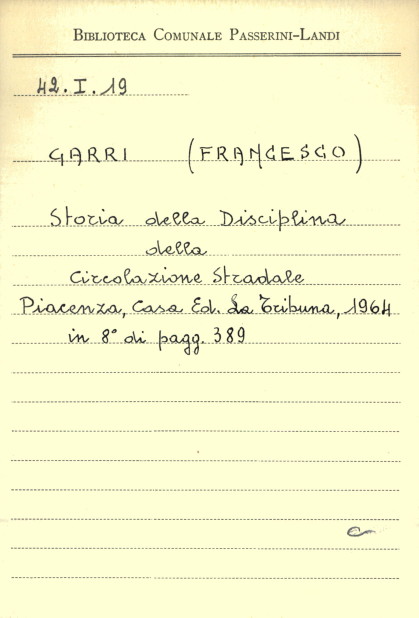 BIBLIOTECA COMUNALE PASSERINI-LANDI
42.I.19
GARRI (FRANCESCO)
Storia della Disciplina
della
Circolazione Stradale
Piacenza, Casa Ed. La Tribuna, 1964
in 8° di pagg. 389